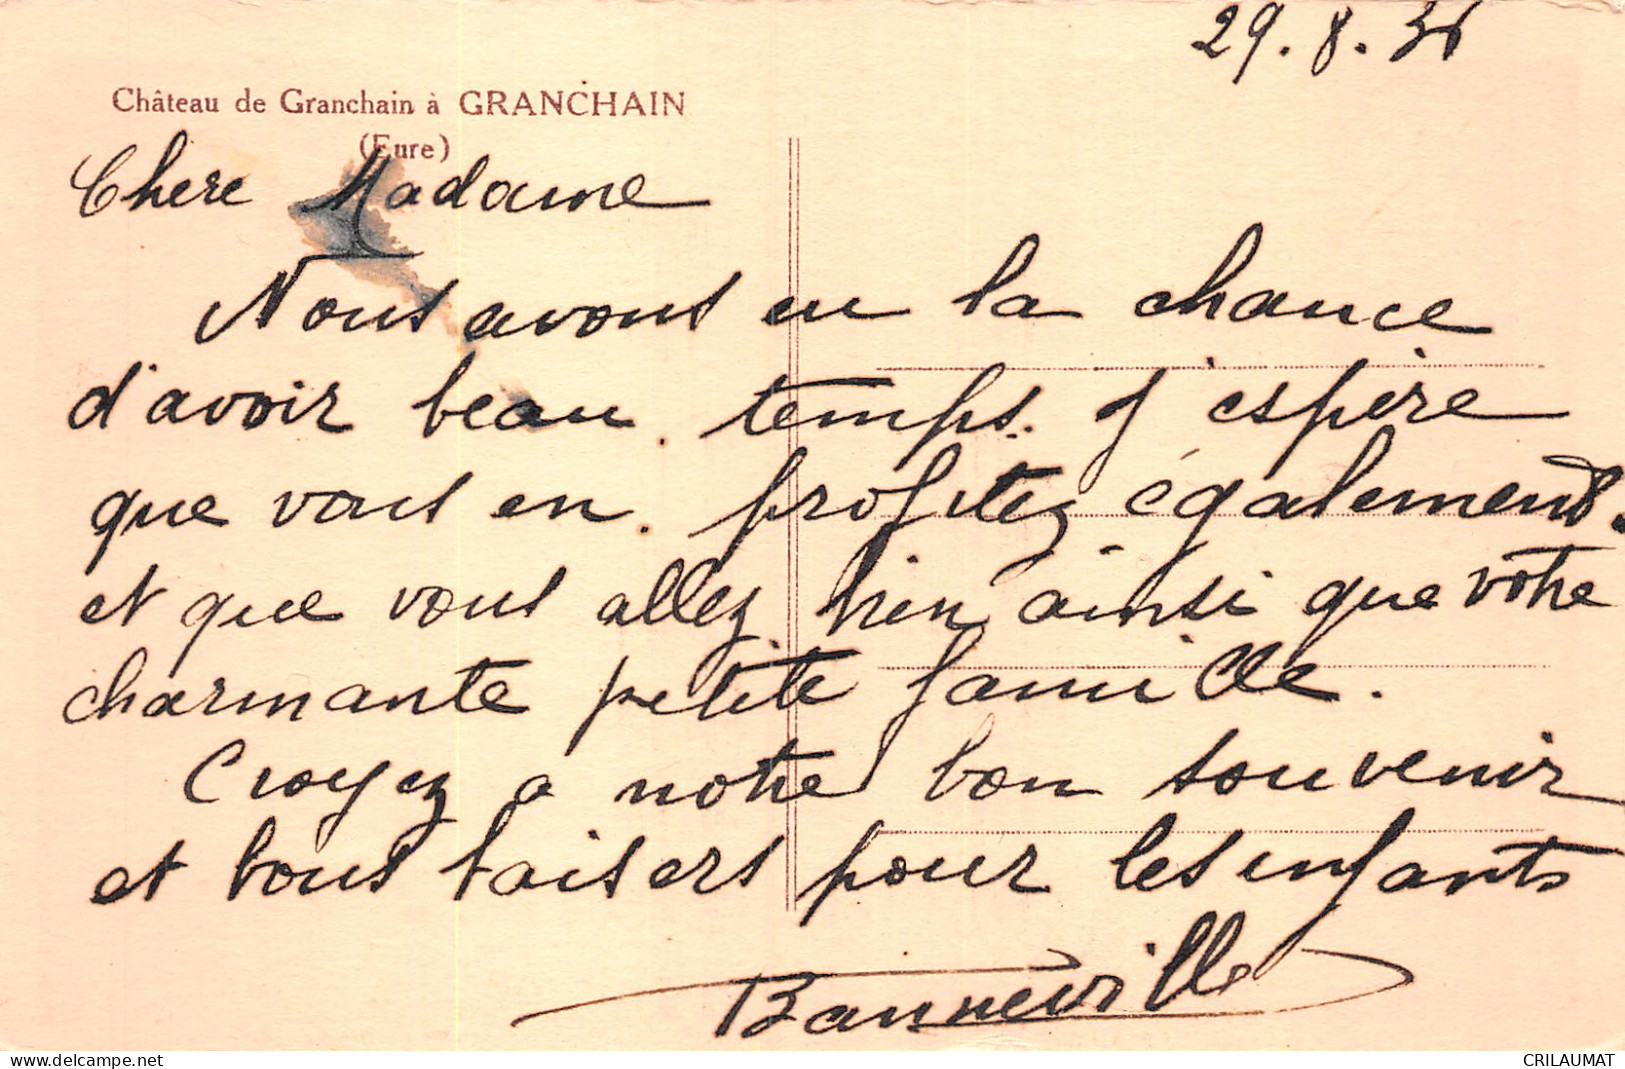 29.8.36
Château de Granchain à GRANCHAIN
(Eure)
Chere Madame
Nous avons eu la chance
d'avoir beau temps. J'espère
que vous en profitez également.
et que vous allez bien ainsi que votre
charmante petite famille.
Croyez a notre bon souvenir
et bons baisers pour les enfants
Banneville
www.delcampe.net
CRILAUMAT